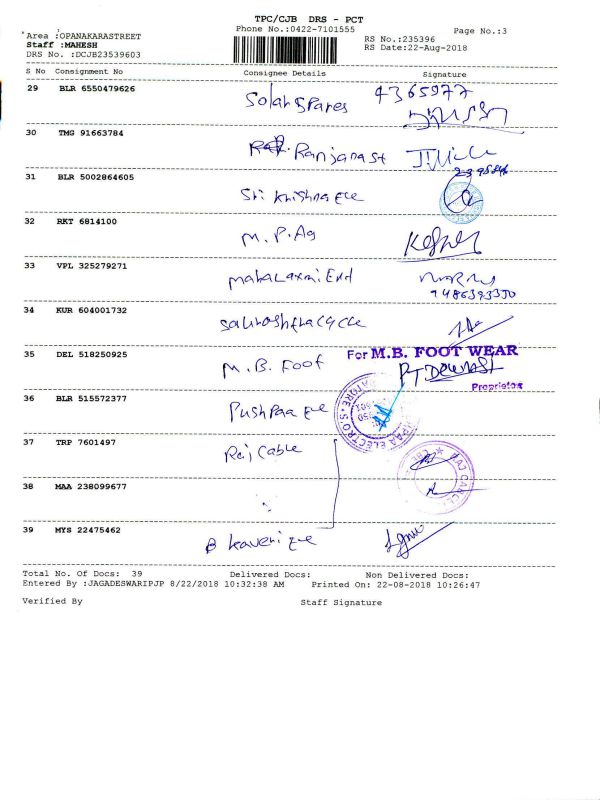 TPC/CJB DRS - PCT
Phone No.:0422-7101555
Page No.:3
Area :OPANAKARASTREET
Staff :MAHESH
DRS No. :DCJB23539603
RS No.:235396
RS Date:22-Aug-2018
S No Consignment No Consignee Details Signature
29 BLR 6550479626 Solar Spares 4365977
30 TMG 91663784 Ranjana st
31 BLR 5002864605 Sri Krishna Ele
32 RKT 6814100 M.P. Ag
33 VPL 325279271 Mahalaxmi Ent
9486393350
34 KUR 604001732
35 DEL 518250925 M.B. Foot For M.B. FOOT WEAR
Proprietor
36 BLR 515572377 Pushpaa Ele
37 TRP 7601497 Raj Cable
38 MAA 238099677
39 MYS 22475462 B Kaveri Ele
Total No. Of Docs: 39 Delivered Docs: Non Delivered Docs:
Entered By :JAGADESWARIPJP 8/22/2018 10:32:38 AM Printed On: 22-08-2018 10:26:47
Verified By Staff Signature